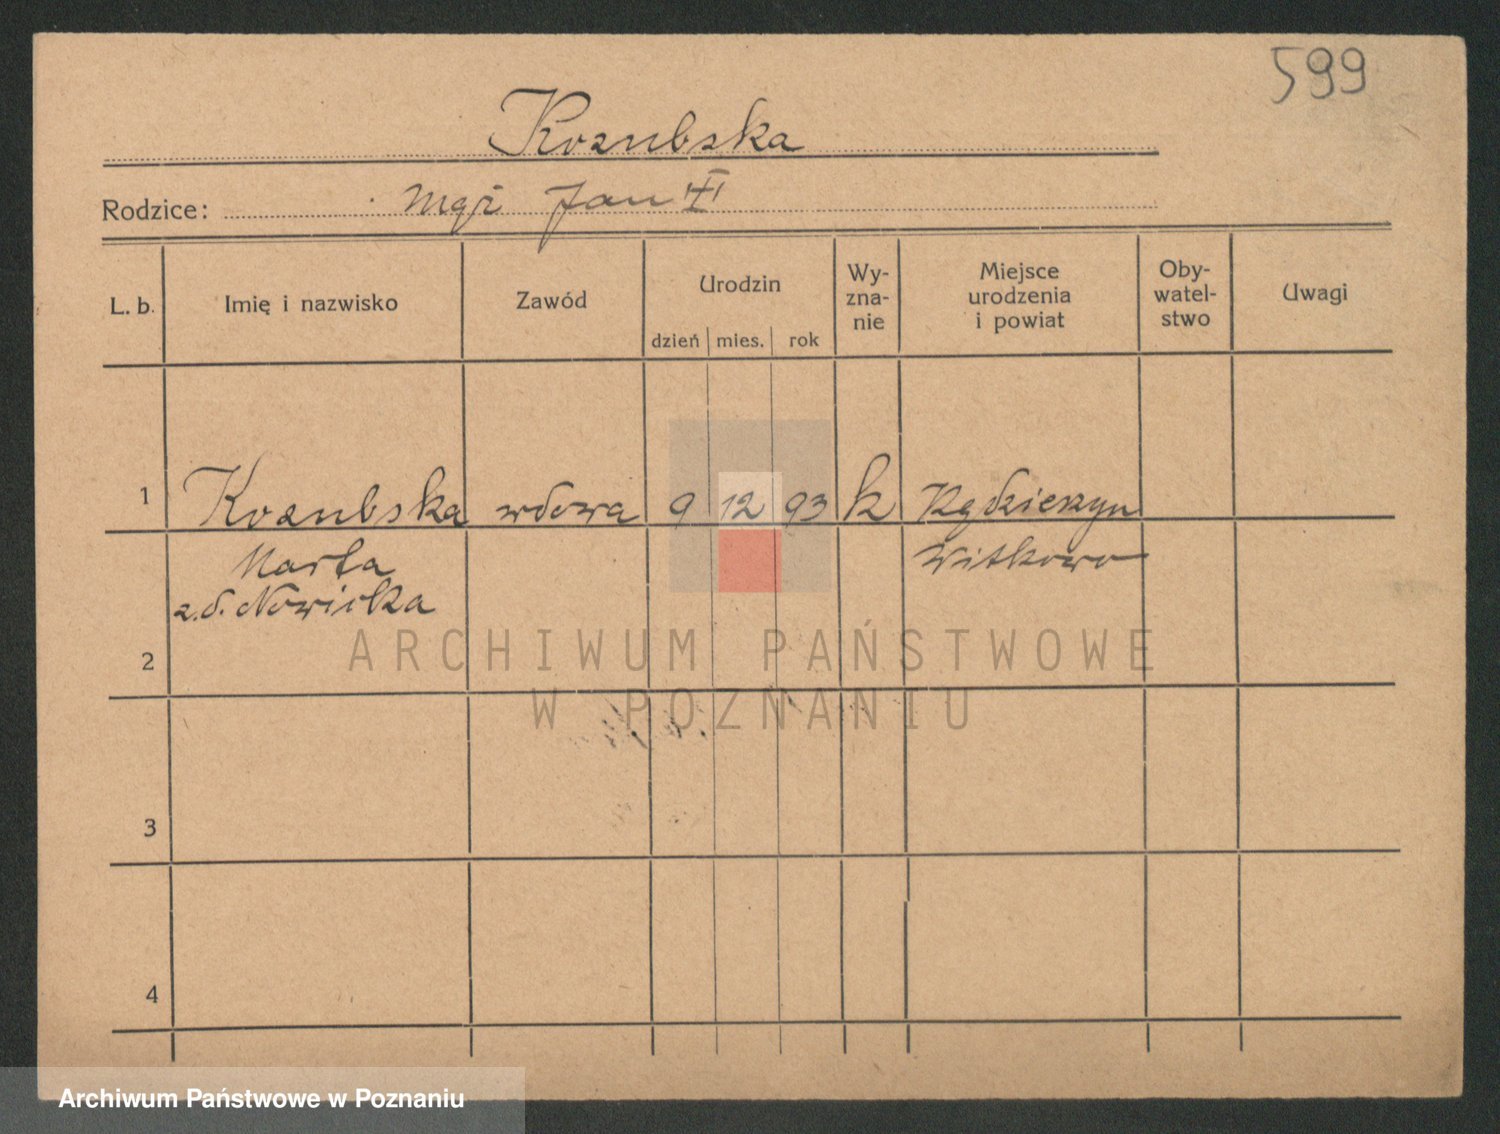 599
Kozubska
Rodzice: Mąż Jan
L. b. Imię i nazwisko Zawód Urodzin Wy-
zna-
nie Miejsce
urodzenia
i powiat Oby-
watel-
stwo Uwagi
dzień mies. rok
1 Kozubska wdowa 9 12 93 k
Marta Witkowo
z.d. Nowicka
2
ARCHIWUM PAŃSTWOWE
W POZNANIU
3
4
Archiwum Państwowe w Poznaniu